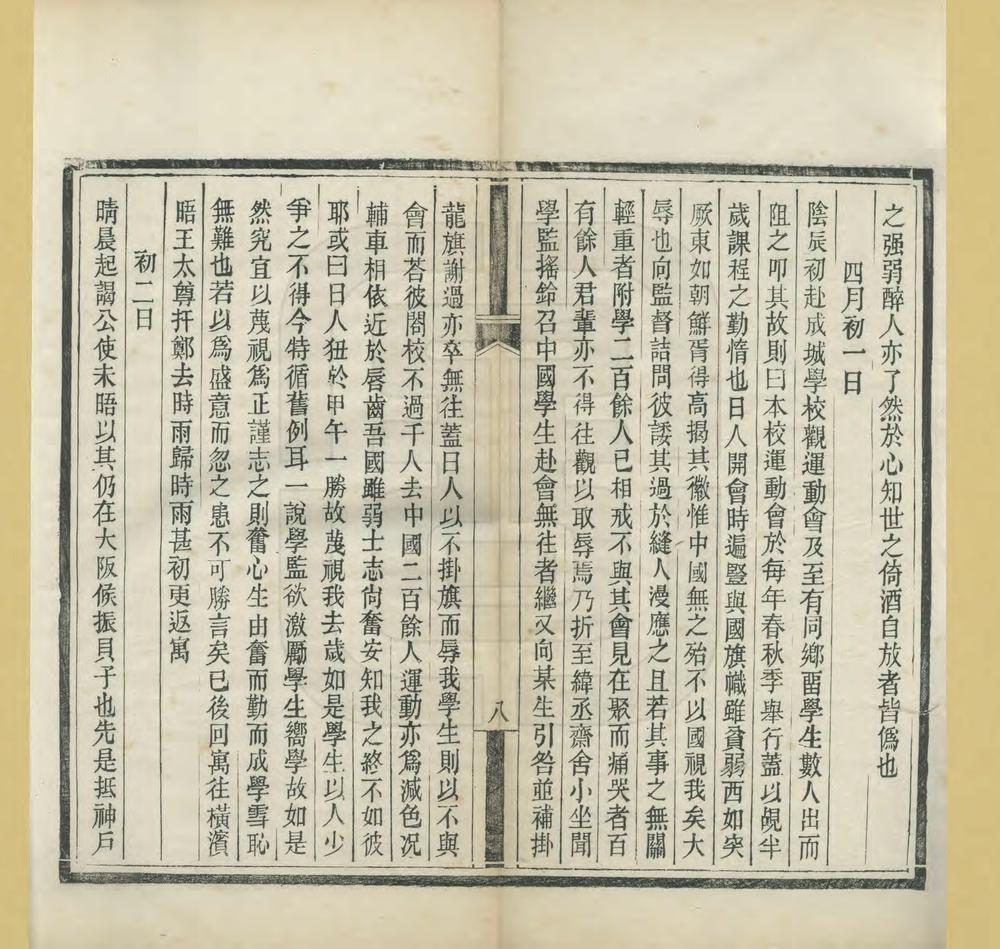 之强弱醉人亦了然於心知世之倚酒自放者皆僞也
四月初一日
陰辰初赴成城學校觀運動會及至有同鄉畱學生數人出而
阻之叩其故則曰本校運動會於每年春秋季舉行蓋以覘半
歲課程之勤惰也日人開會時遍豎與國旗幟雖貧弱西如突
厥東如朝鮮胥得高揭其徽惟中國無之殆不以國視我矣大
辱也向監督詰問彼諉其過於縫人漫應之且若其事之無關
輕重者附學二百餘人已相戒不與其會見在聚而痛哭者百
有餘人君輩亦不得往觀以取辱焉乃折至緯丞齋舍小坐聞
學監搖鈴召中國學生赴會無往者繼又向某生引咎並補掛
八
龍旗謝過亦卒無往蓋日人以不掛旗而辱我學生則以不與
會而荅彼閤校不過千人去中國二百餘人運動亦爲減色况
輔車相依近於唇齒吾國雖弱士志尙奮安知我之終不如彼
耶或曰日人狃於甲午一勝故蔑視我去歲如是學生以人少
爭之不得今特循舊例耳一說學監欲激厲學生嚮學故如是
然究宜以蔑視爲正謹志之則奮心生由奮而勤而成學雪恥
無難也若以爲盛意而忽之患不可勝言矣巳後回寓往橫濱
晤王太尊扞鄭去時雨歸時雨甚初更返寓
初二日
晴晨起謁公使未晤以其仍在大阪候振貝子也先是抵神戶